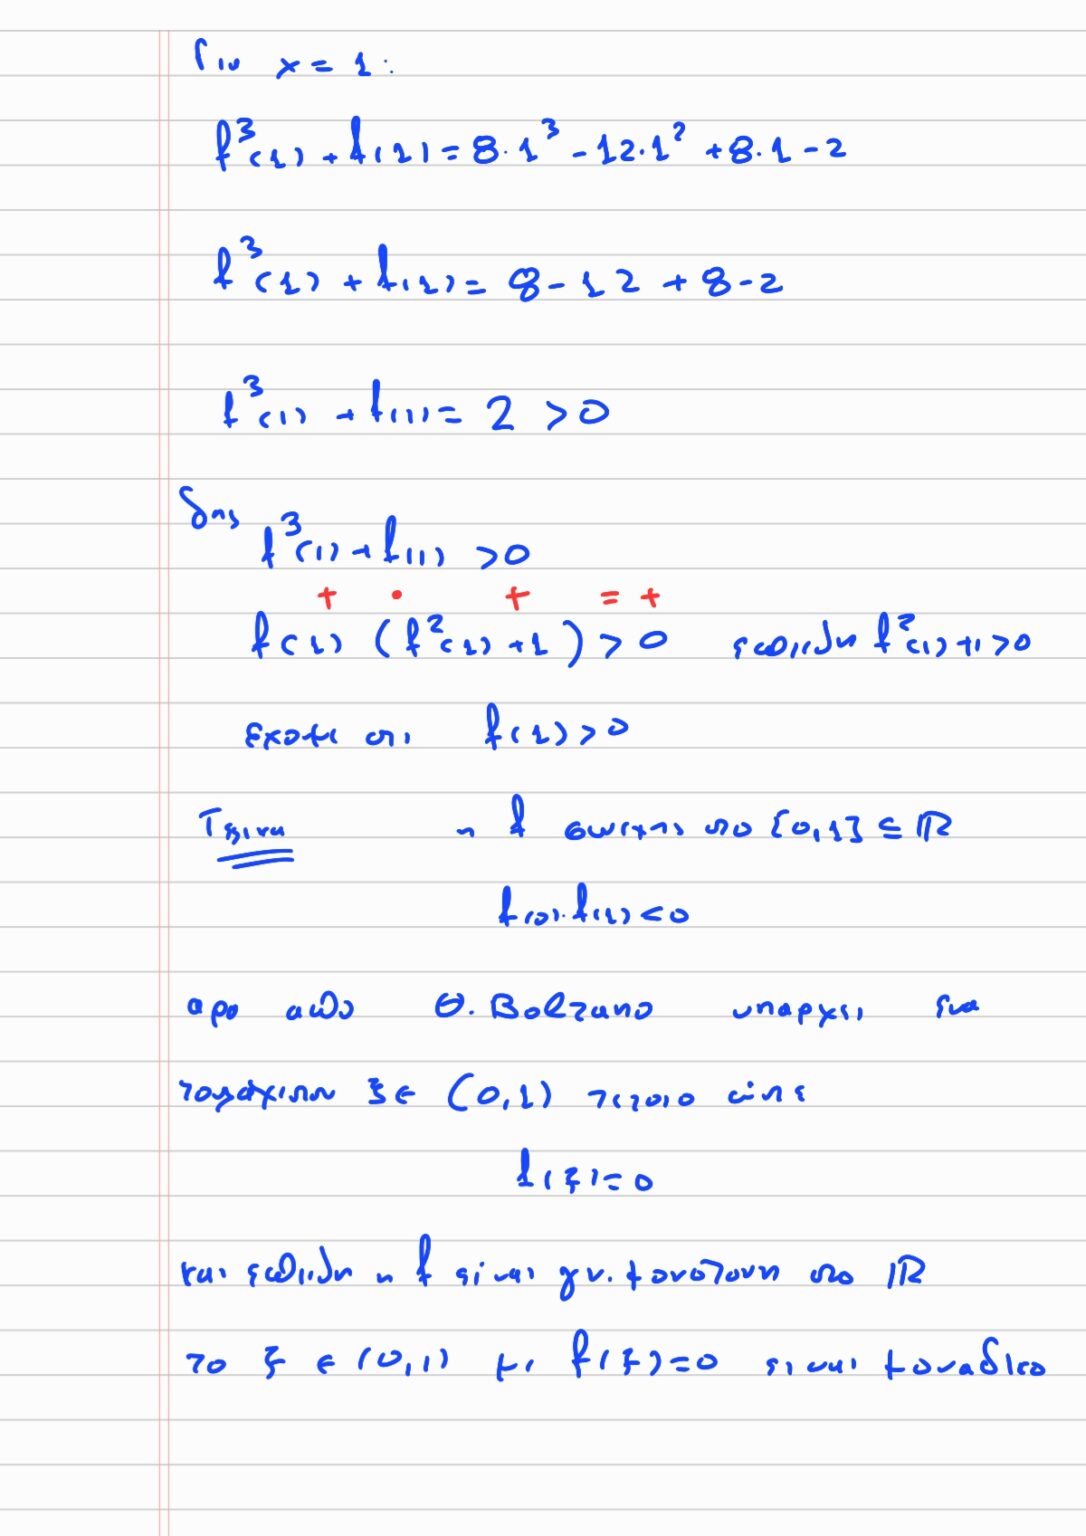 Για x = 1:
f³(1) + f(1) = 8·1³ - 12·1² + 8·1 - 2
f³(1) + f(1) = 8 - 12 + 8 - 2
f³(1) + f(1) = 2 > 0
δης
f³(1) + f(1) > 0
+ · + = +
f(1) (f²(1) + 1) > 0 επειδη f²(1) + 1 > 0
εχουμε οτι f(1) > 0
Τελικα η f συνεχης στο [0,1] ⊆ ℝ
f(0)·f(1) < 0
αρα απο Θ. Bolzano υπαρχει ενα
τουλάχιστον ξ ∈ (0,1) τετοιο ώστε
f(ξ) = 0
και επειδη η f ειναι γν. μονοτονη στο ℝ
το ξ ∈ (0,1) με f(ξ) = 0 ειναι μοναδικο